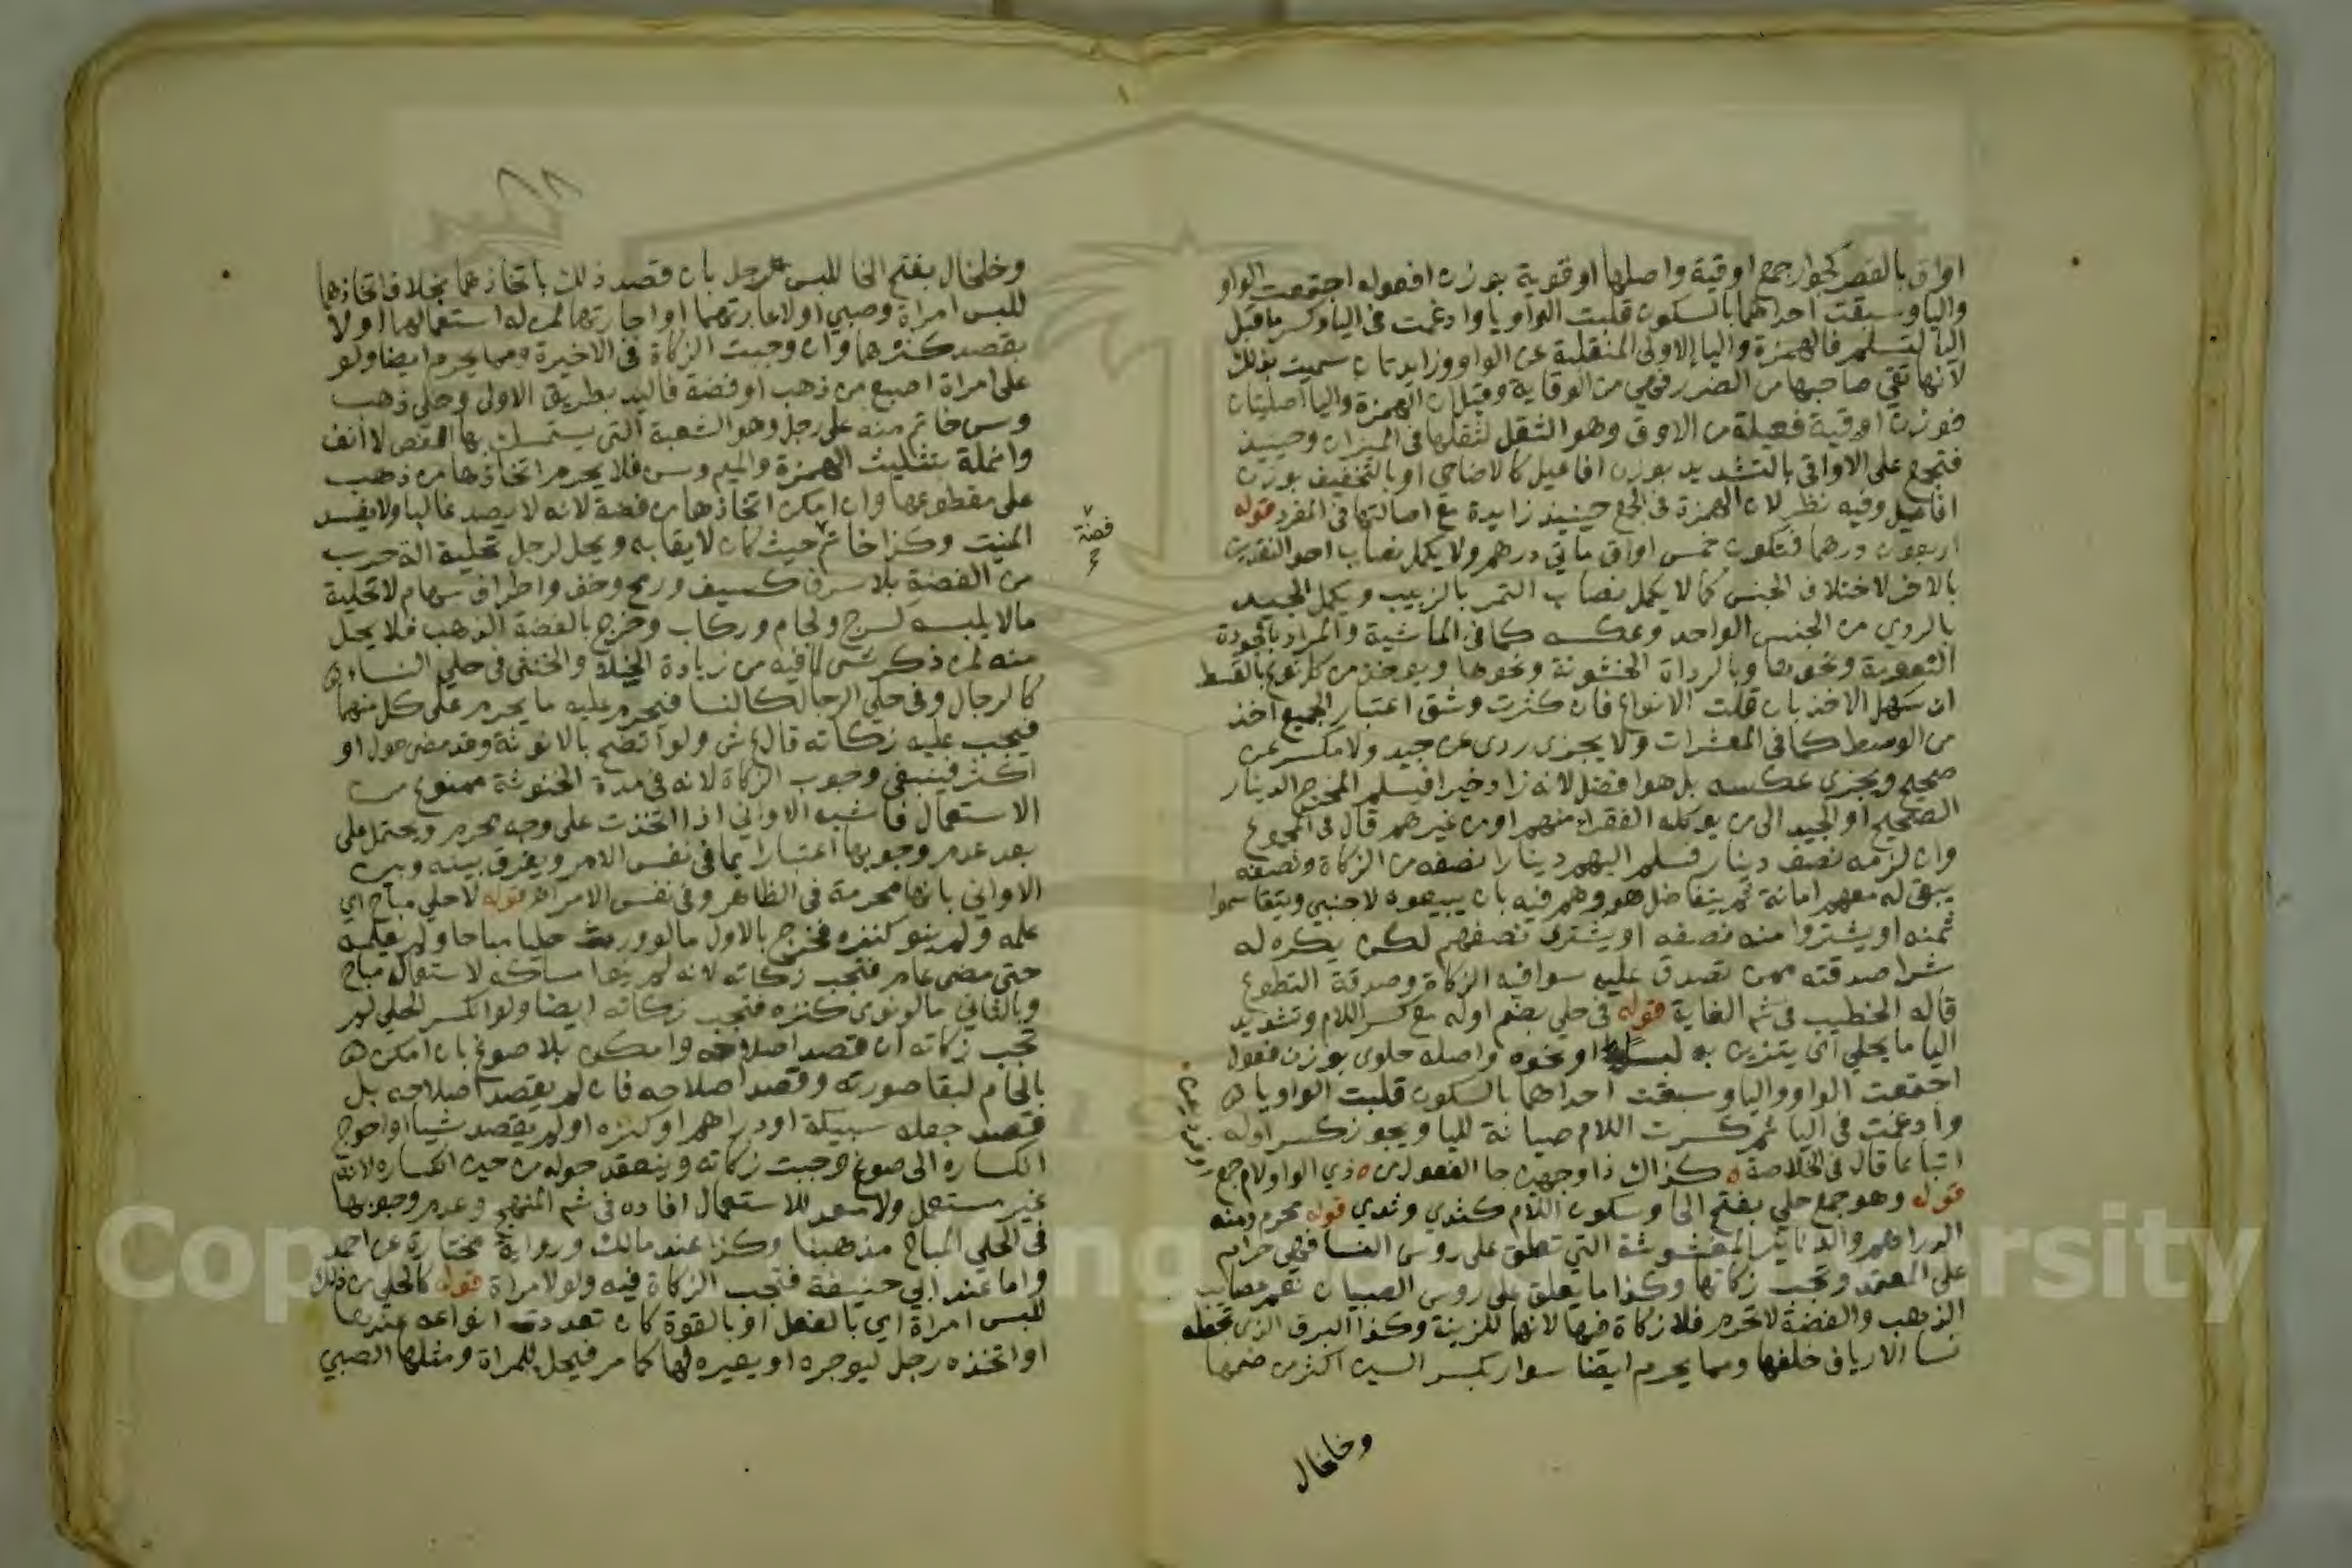 اواق بالقصر كجوار جمع اوقية واصلها اوقوية بوزن افعوله اجتمعت الواو
واليا وسبقت احداهما بالسكون قلبت الواو يا وادغمت في اليا وكسر ما قبل
اليا لتسلم فالهمزة واليا الاولى المنقلبة عن الواو وزايدتان سميت بذلك
لانها تقي صاحبها من الضرر فهي من الوقاية وقيل ان الهمزة واليا اصليتان
فوزن اوقية فعيلة من الاوق وهو الثقل لثقلها في الميزان وحينيذ
فتجمع على الاواقي بالتشديد بوزن افاعيل كالاضاحي او بالتخفيف بوزن
افاعيل وفيه نظر لان الهمزة في الجمع حينيذ زايدة مع اصالتها في المفرد قوله
اربعون درهما فتكون خمس اواق مايتي درهم ولا يكمل نصاب احد النقدين
بالاخر لاختلاف الجنس كما لا يكمل نصاب التمر بالزبيب ويكمل الجيد
بالردي من الجنس الواحد وعكسه كما في الماشية والمراد بالجودة
النعومة ونحوها وبالرداة الخشونة ونحوها ويوخذ من كل نوع بالقسط
ان سهل الاخذ بان قلت الانواع فان كثرت وشق اعتبار الجميع اخذ
من الوسط كما في المعشرات ولا يجزي ردي عن جيد ولا مكسر عن
صحيح ويجزي عكسه بل هو افضل لانه زاد خيرا فيسلم المخرج الدينار
الصحيح او الجيد الى من يوكله الفقرا منهم او من غيرهم قال في المجموع
وان لزمه نصف دينار فسلم اليهم دينارا نصفه من الزكاة ونصفه
يبقى له معهم امانة ثم يتفاصل هو وهم فيه بان يبيعوه لاجنبي ويتقاسموا
ثمنه او يشتروا منه نصفه او يشتري نصفهم لكن يكره له
شرا صدقته ممن تصدق عليه سوا فيه الزكاة وصدقة التطوع
قاله الخطيب في شرح الغاية قوله في حلي بضم اوله مع كسر اللام وتشديد
اليا ما يحلى اي يتزين به او نحوه واصله حلوى بوزن فعول
اجتمعت الواو واليا وسبقت احداهما بالسكون قلبت الواو يا
وادغمت في اليا ثم كسرت اللام صيانة لليا ويجوز كسر اوله
اتباعا قال في الخلاصة كذاك ذا وجهين جا الفعول من ذي الواو لام جمع
قوله وهو جمع حلي بفتح الحا وسكون اللام كثدي وثدي قوله محرم ومنه
الدراهم والدنانير المغشوشة التي تعلق على روس النسا فهي حرام
على المعتمد وتجب زكاتها وكذا ما يعلق على روس الصبيان نعم عصايب
الذهب والفضة لا تحرم فلا زكاة فيها لانها للزينة وكذا البرق الذي تجعله
نسا الارياف خلفها ومما يحرم ايضا سوار بكسر السين اكثر من ضمها
وخلخال
وخلخال بفتح الخا للبس رجل بان قصد ذلك باتخاذهما بخلاف اتخاذهما
للبس امراة وصبي او لاعارتهما او اجارتهما لمن له استعمالهما او لا
بقصد كنزهما وان وجبت الزكاة في الاخيرة ومما يحرم ايضا ولو
على امراة اصبع من ذهب او فضة فاليد بطريق الاولى وحلي ذهب
وسن خاتم منه على رجل وهو الشعبة التي يستمسك بها الفص لا انف
وانملة بتثليث الهمزة والميم وسن فلا يحرم اتخاذها من ذهب
على مقطوعها وان امكن اتخاذها من فضة لانه لا يصدا غالبا ولا يفسد
المنبت وكذا خاتم حيث كان لايقا به ويحل لرجل تحلية الة حرب
فضة
من الفضة بلا سرف كسيف ورمح وخف واطراف سهام لا تحلية
مالا يلبسه كسرج ولجام وركاب وخرج بالفضة الذهب فلا يحل
منه لمن ذكر شي لما فيه من زيادة الخيلا والخنثى في حلي النساء
كالرجال وفي حلي الرجال كالنسا فيحرم عليه ما يحرم على كل منهما
فيجب عليه زكاته قال ع ش ولو اتضح بالانوثة وقد مضى حول او
اكثر فينبغي وجوب الزكاة لانه في مدة الخنوثة ممنوع من
الاستعمال فاشبه الاواني اذا اتخذت على وجه محرم ويحتمل على
بعد عدم وجوبها اعتبارا بما في نفس الامر ويفرق بينه وبين
الاواني بانها محرمة في الظاهر وفي نفس الامر اهـ قوله لا حلي مباح اي
علمه ولم ينو كنزه فخرج بالاول ما لو ورث حليا مباحا ولم يعلمه
حتى مضى عام فتجب زكاته لانه لم ينو امساكه لاستعمال مباح
وبالثاني ما لو نوى كنزه فتجب زكاته ايضا ولو انكسر الحلي لم
تجب زكاته ان قصد اصلاحه وامكن بلا صوغ بان امكن
بالحام لبقا صورته وقصد اصلاحه فان لم يقصد اصلاحه بل
قصد جعله سبيكة او دراهم او كنزه او لم يقصد شيا او احوج
انكساره الى صوغ وجبت زكاته وينعقد حوله من حين انكساره لانه
غير مستعمل ولا معد للاستعمال افاده في شرح المنهج وعدم وجوبها
في الحلي المباح مذهبنا وكذا عند مالك ورواية مختارة عن احمد
واما عند ابي حنيفة فتجب الزكاة فيه ولو لامراة قوله كالحلي من ذلك
للبس امراة اي بالفعل او بالقوة كان تعددت انواعه عندها
او اتخذه رجل ليوجره او يعيره لها كما مر فيحل للمراة ومثلها الصبي
Copyright © King Saud University